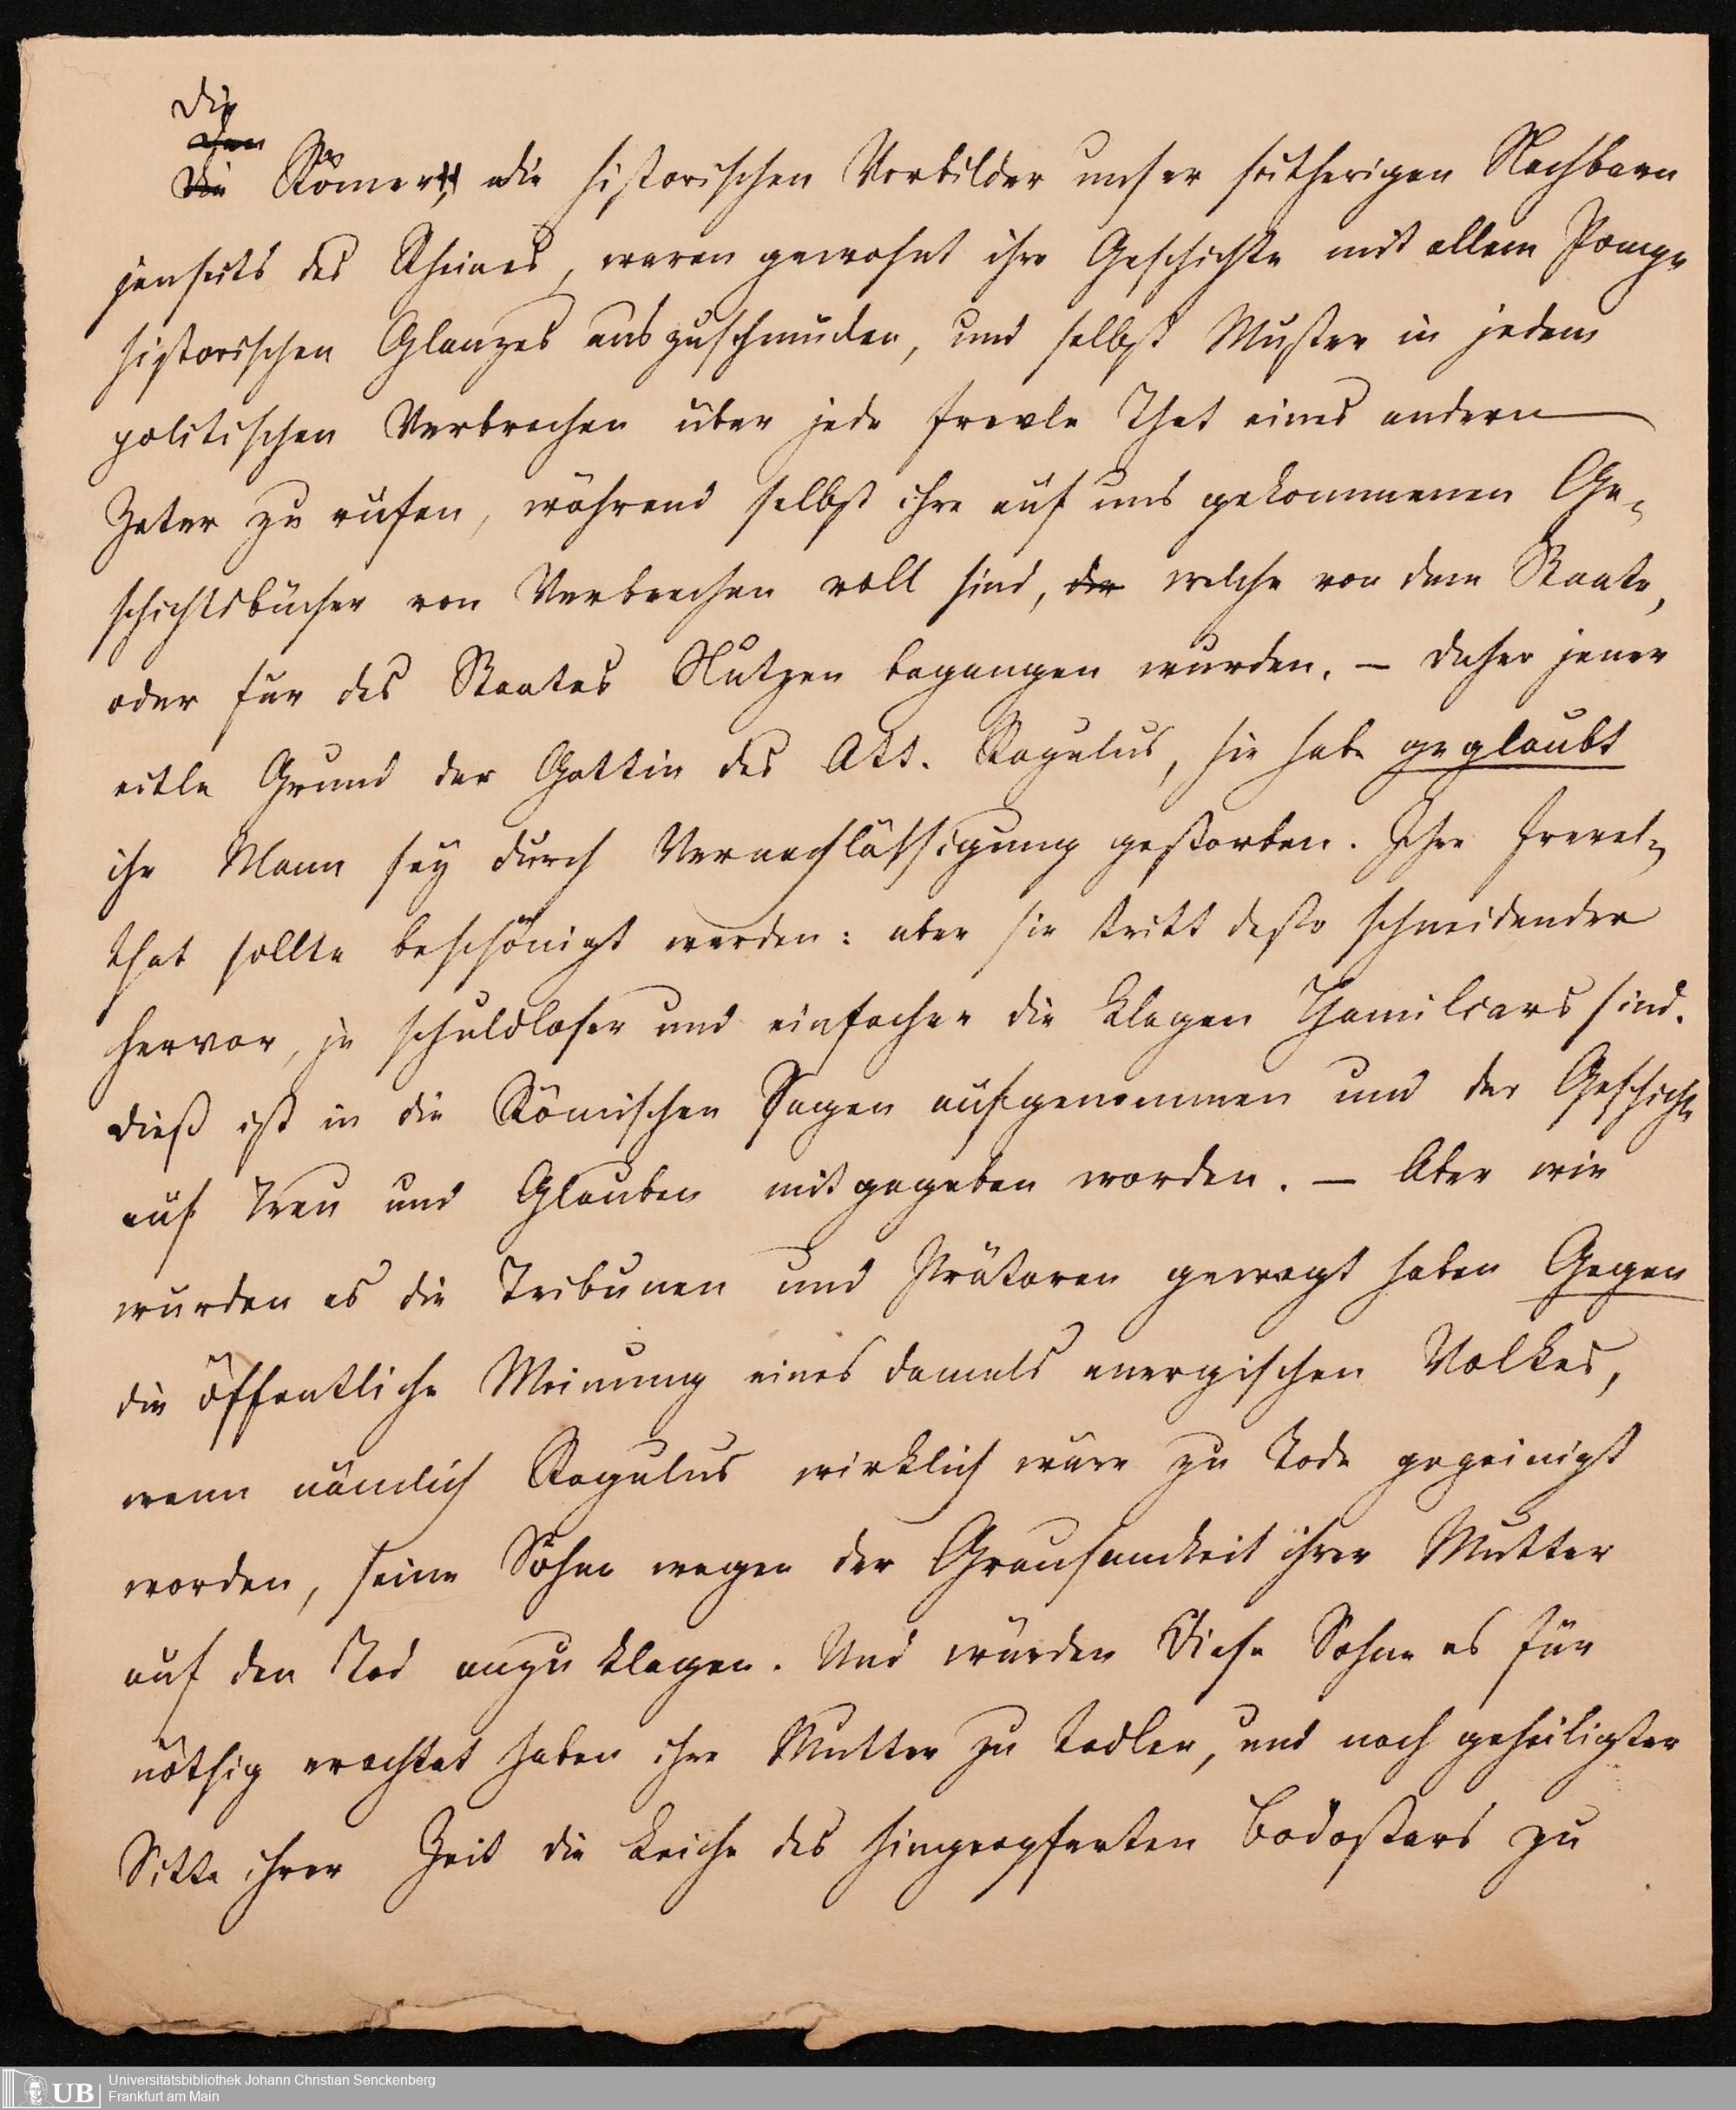 Die
Den
Die Römer, die historischen Vorbilder unser seitherigen Nachbarn
jenseits des Rheines, waren gewohnt ihre Geschichte mit allem Pompe
historischen Glanzes auszuschmücken, und selbst Muster in jedem
politischen Verbrechen über jede frevle That eines andern
Zeter zu rufen, während selbst ihre auf uns gekommenen Ge-
schichtsbücher von Verbrechen voll sind, die welche von dem Staate,
oder für des Staates Nutzen begangen wurden. – Daher jener
eitle Grund der Gattin des Att. Regulus, sie habe geglaubt
ihr Mann sey durch Vernachlässigung gestorben. Ihre Frevel-
that sollte beschönigt werden: aber sie tritt desto schneidender
hervor, je schuldloser und einfacher die Klagen Hamilcars sind.
Dieß ist in die Römischen Sagen aufgenommen und der Geschichte
auf Treu und Glauben mitgegeben worden. – Aber wie
würden es die Tribunen und Prätoren gewagt haben Gegen
die öffentliche Meinung eines damals energischen Volkes,
wenn nämlich Regulus wirklich wäre zu Tode gepeinigt
worden, seine Söhne wegen der Grausamkeit ihrer Mutter
auf den Tod anzuklagen. Und würden Diese Söhne es für
nöthig erachtet haben ihre Mutter zu tadlen, und nach geheiligter
Sitte ihrer Zeit die Leiche des hingeopferten Bodostars zu
Universitätsbibliothek Johann Christian Senckenberg
Frankfurt am Main
UB